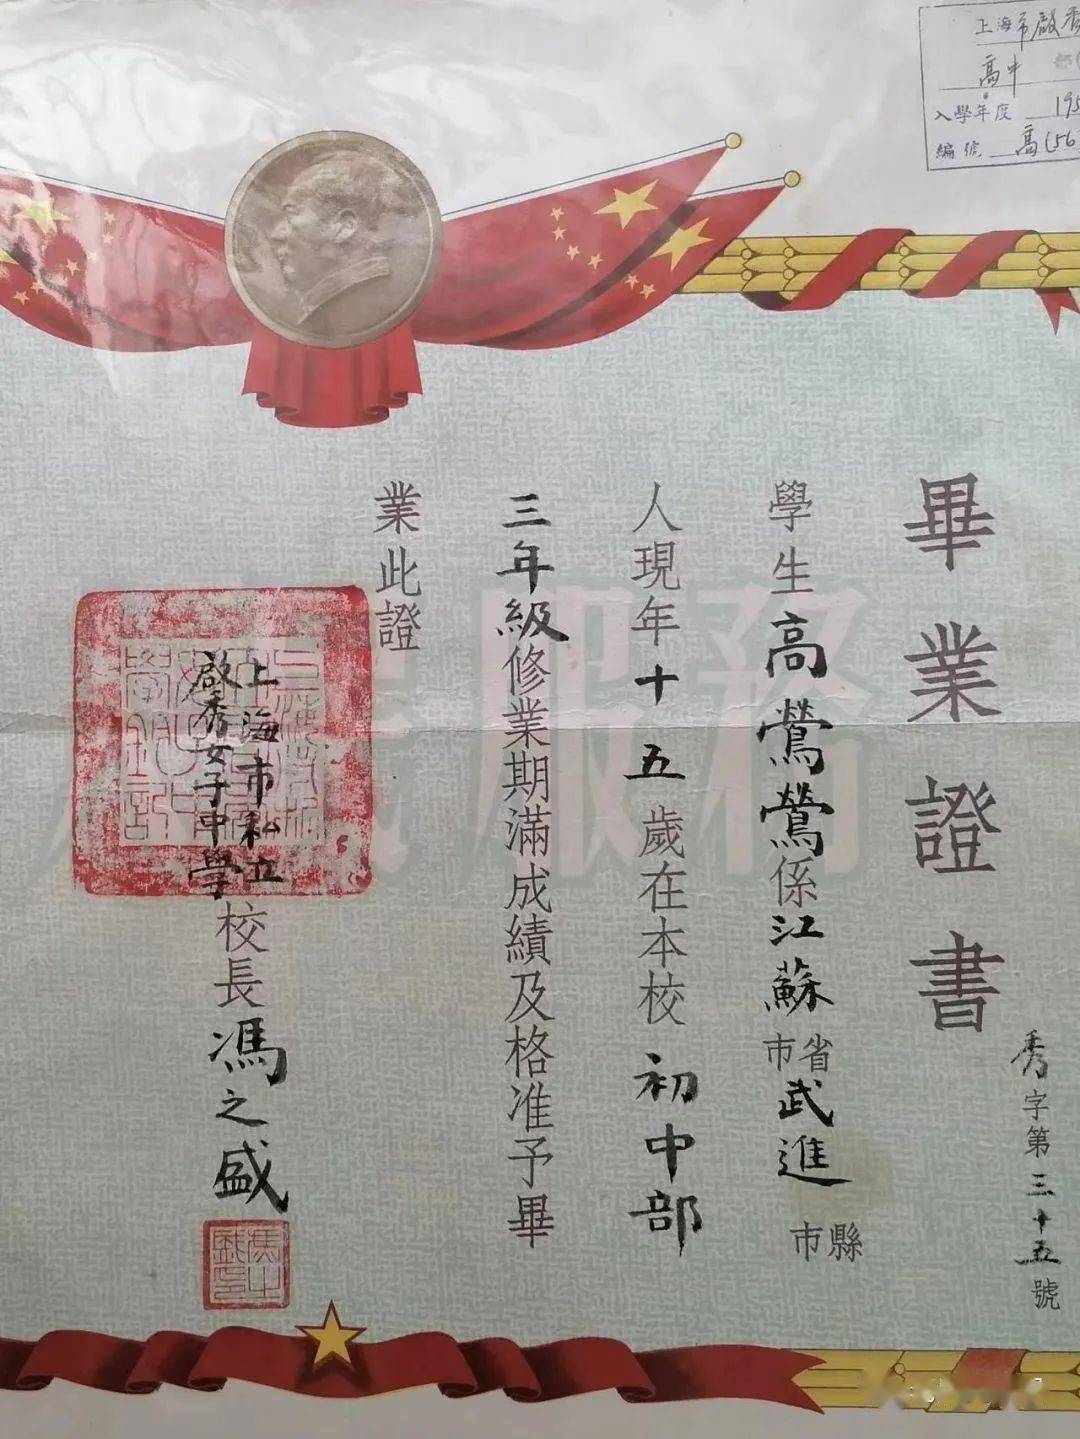 上海市啟秀
高中
入學年度 195
編號 高(56
畢業證書
秀字第三十五號
學生高鶯鶯係江蘇省市武進縣市
人現年十五歲在本校初中部
三年級修業期滿成績及格准予畢
業此證
上海市私立
啟秀女子中學校長馮之盛
服務